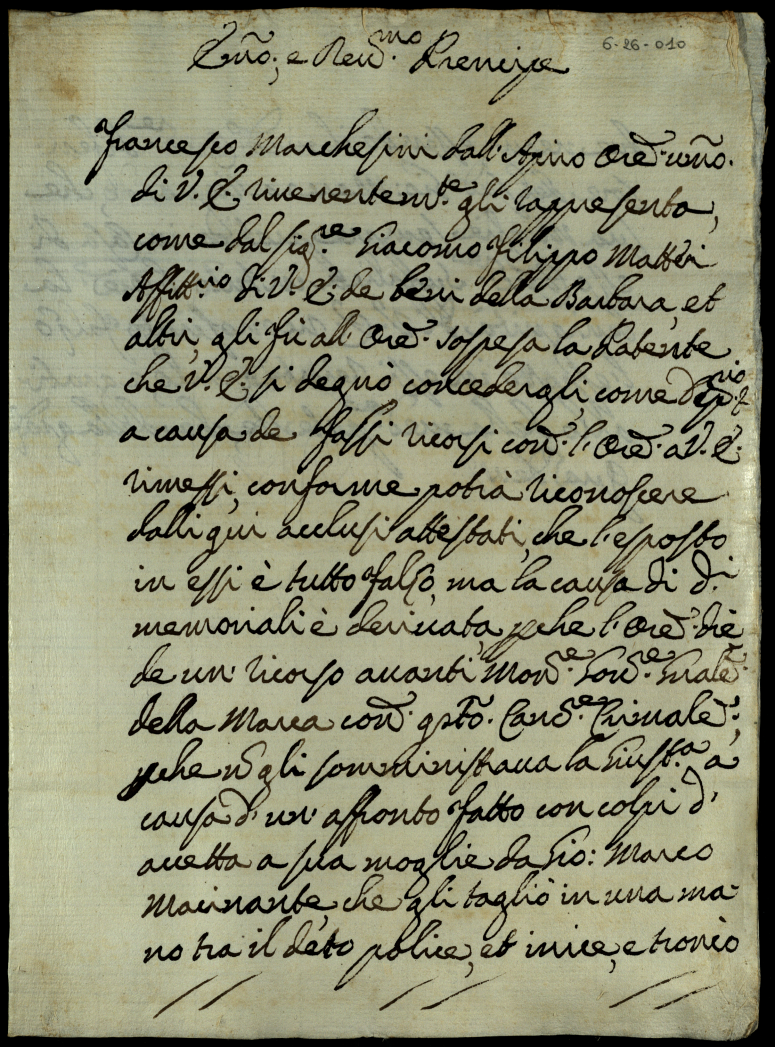 6-26-010
Em̃o: e Reu.mo Prencipe
Francesco Marchesini dall'Apiro Ore: um̃o.
di V. E. riuerentem.te gli rappresenta,
come dal sig.re Giacomo Filippo Matteri
Affitt.rio di V. E. de beni della Barbara, et
altri, gli fù all' Ore: sospesa la Patente
che V. E. si degnò concedergli, come
a causa de falsi ricorsi con: l'Ore: a V. E.
rimessi, conforme potrà riconoscere
dalli qui acclusi attestati, che l'esposto
in essi è tutto falso, ma la causa di d.i
memoriali è deriuata, pche l'Ore: die
de un' ricorso auanti Mon.e Gou.e Gnale
della Marca con: qsto. Canc.e Criminale,
pche ñ gli somministraua la Giust.a à
causa d' un' affronto fatto con colpi d'
accetta a sua moglie da Gio: Marco
Macinante, che gli tagliò in una ma-
no tra il deto police, et inice, e troncò